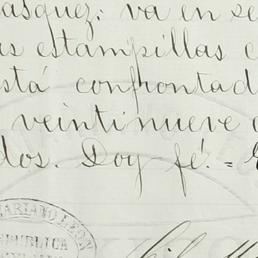 asquez: va en se
as estampillas c
está confrontad
veintinueve
dos. Doy fé. =
MARIANO LEON
REPUBLICA